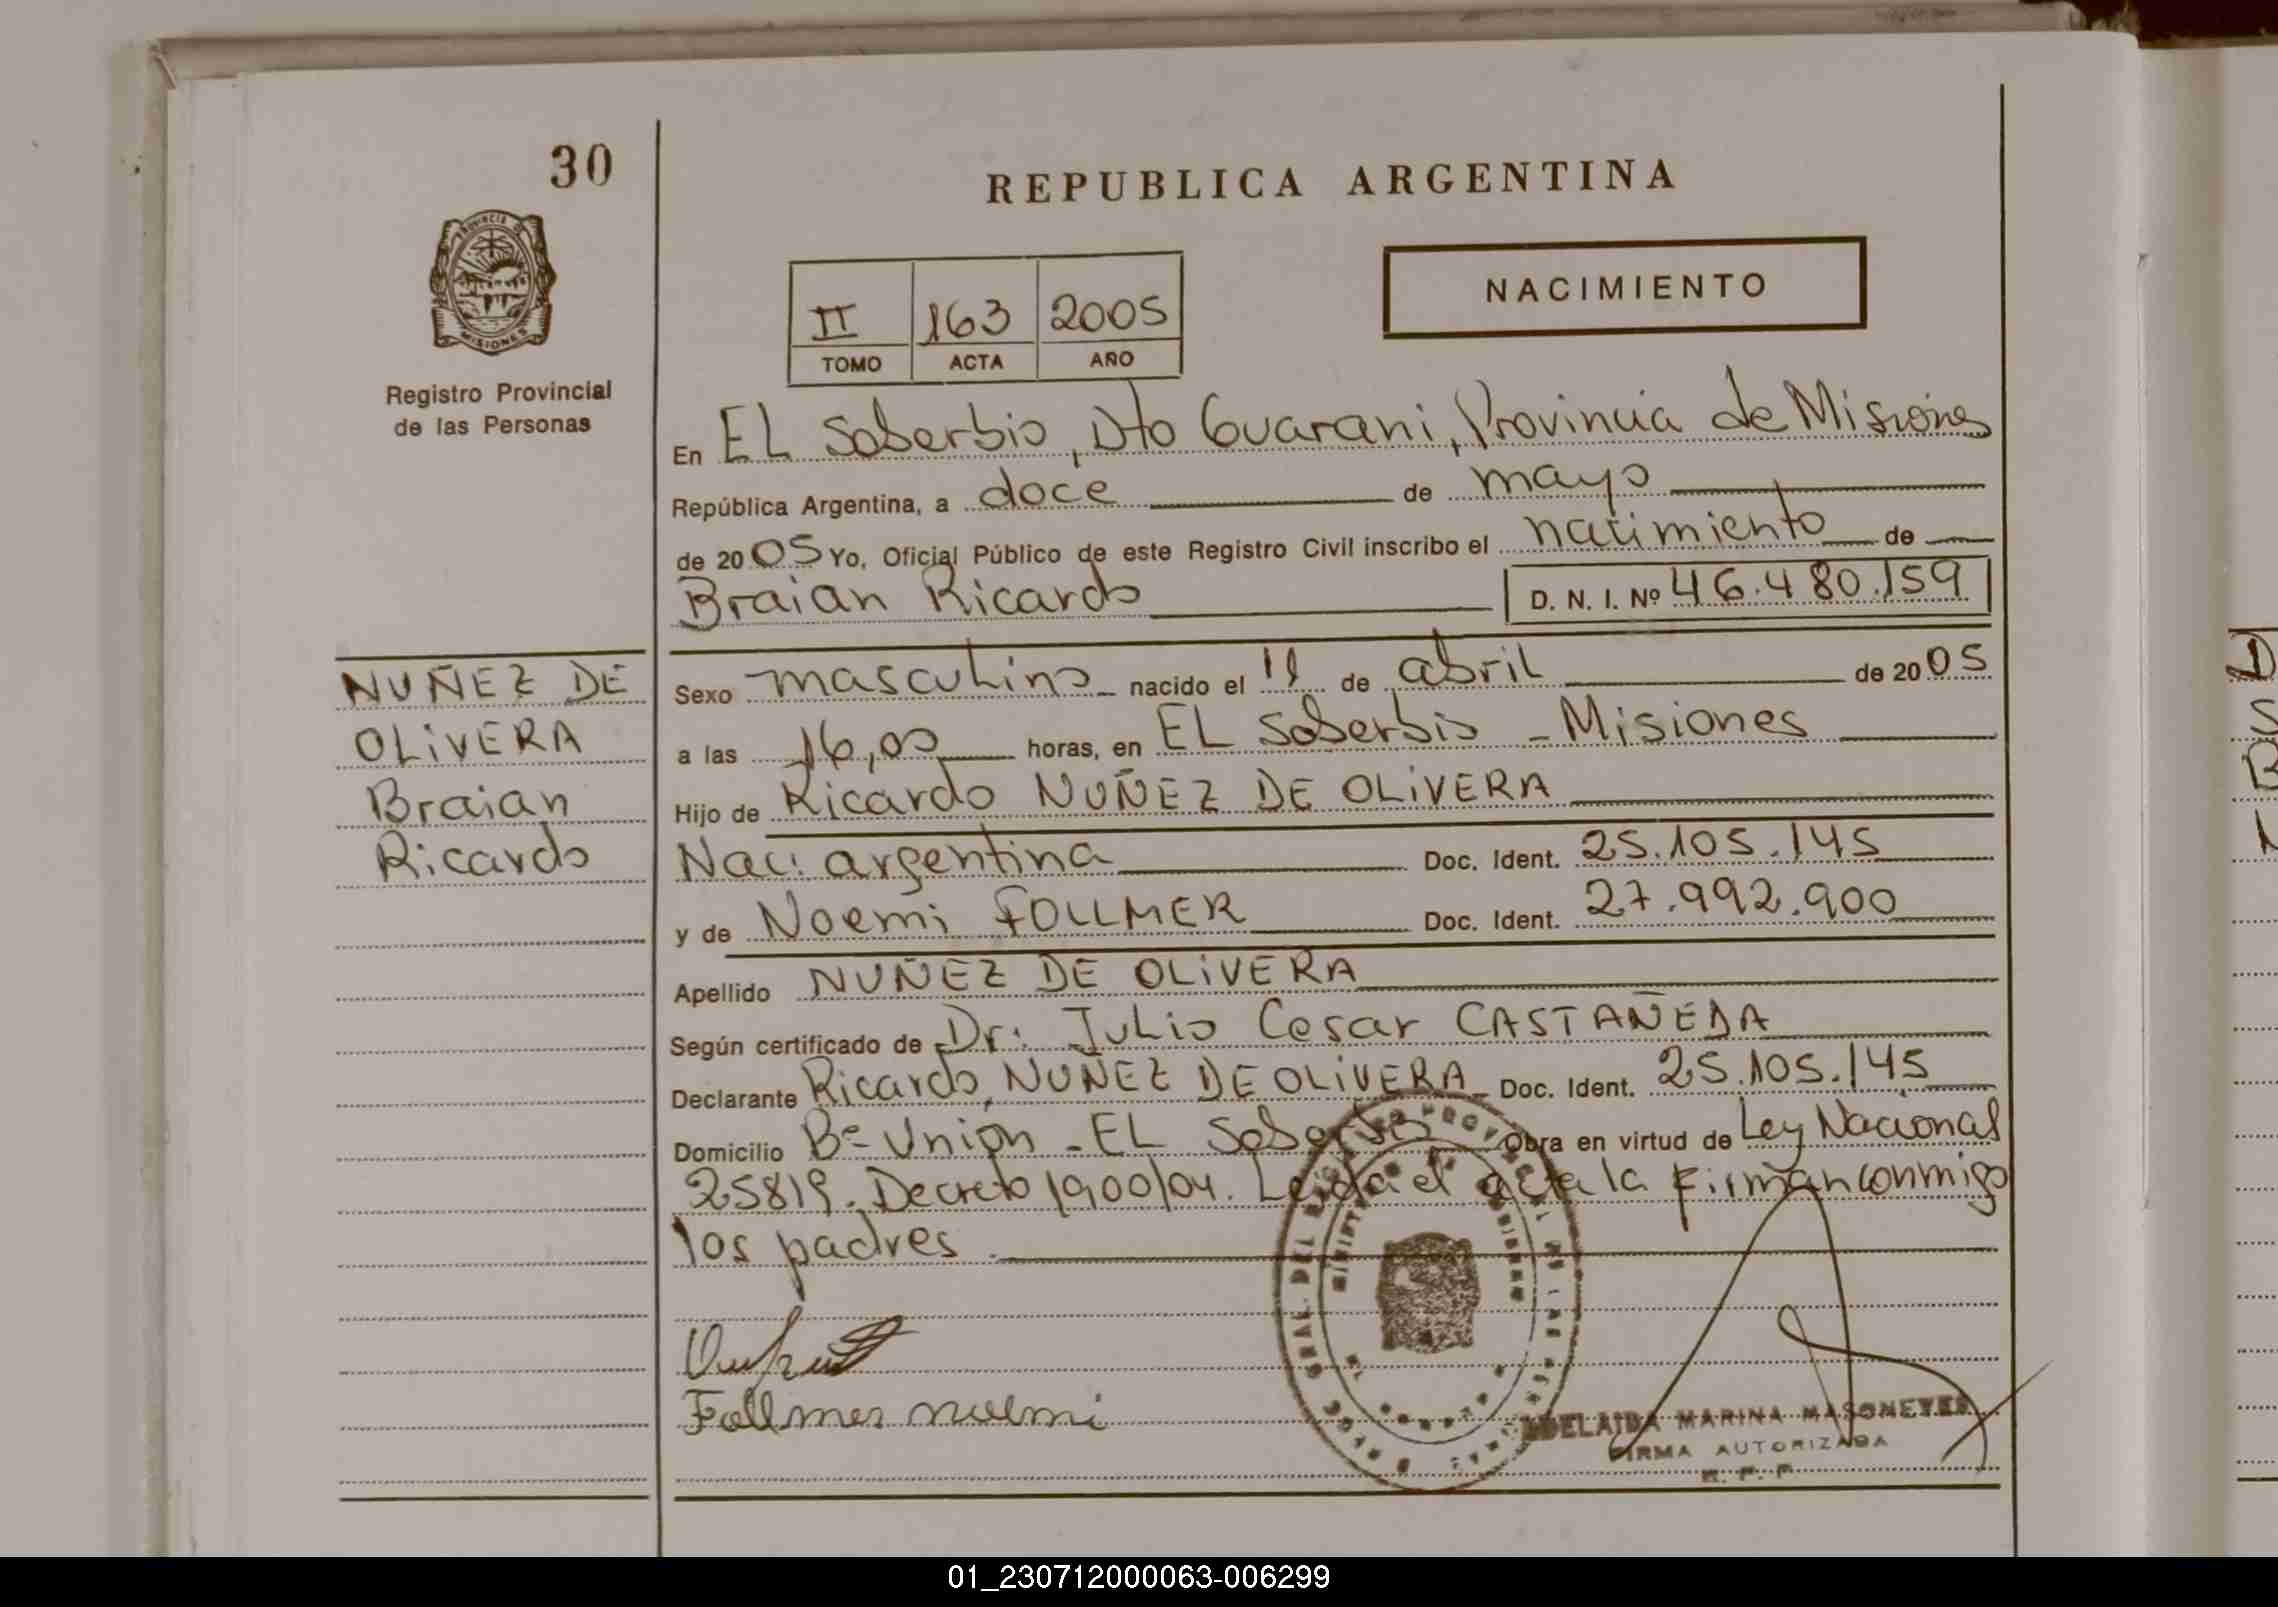 30
REPUBLICA ARGENTINA
PROVINCIA DE
MISIONES
NACIMIENTO
II 163 2005
TOMO ACTA AÑO
Registro Provincial
de las Personas
En EL Soberbio, Dto Guarani, Provincia de Misiones
República Argentina, a doce de mayo
de 2005 Yo, Oficial Público de este Registro Civil inscribo el nacimiento de
Braian Ricardo D. N. I. Nº 46.480.159
NUÑEZ DE
OLiVERA
Braian
Ricardo
Sexo masculino nacido el 11 de abril de 2005
a las 16,00 horas, en EL Soberbio - Misiones
Hijo de Ricardo NUÑEZ DE OLiVERA
Nac: argentina Doc. Ident. 25.105.145
y de Noemi FOLLMER Doc. Ident. 27.992.900
Apellido NUÑEZ DE OLiVERA
Según certificado de Dr: Julio Cesar CASTAÑEDA
Declarante Ricardo, NUÑEZ DE OLiVERA Doc. Ident. 25.105.145
Domicilio Bº Union - EL Soberbio Obra en virtud de Ley Nacional
25819. Decreto 1900/04. Leida el acta la firman conmigo
los padres.
Follmer noemi
ADELAIDA MARINA MASONEYER
FIRMA AUTORIZADA
01_230712000063-006299